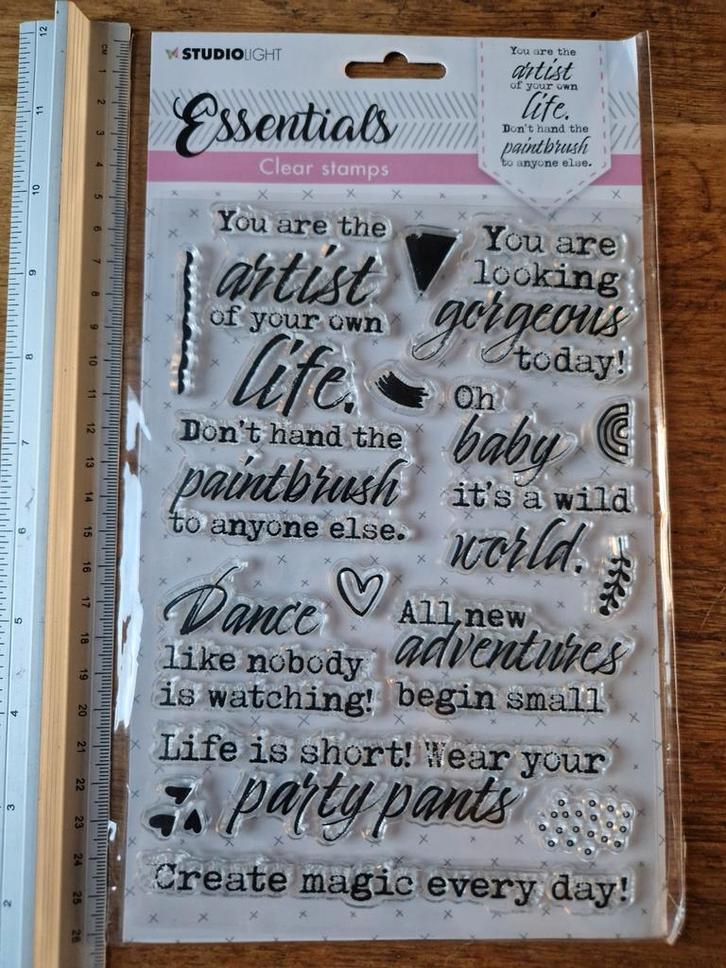 STUDIOLIGHT
Essentials
Clear stamps
You are the
artist
of your own
life.
Don't hand the
paintbrush
to anyone else.
You are the
artist
of your own
life.
Don't hand the
paintbrush
to anyone else.
You are
looking
gorgeous
today!
Oh
baby
it's a wild
world.
Dance
like nobody
is watching!
All new
adventures
begin small
Life is short! Wear your
party pants
Create magic every day!
12
11
10
9
8
7
6
5
4
3
2
CM
1
2
3
4
5
6
7
8
9
10
11
12
13
14
15
16
17
18
19
20
21
22
23
24
25
26